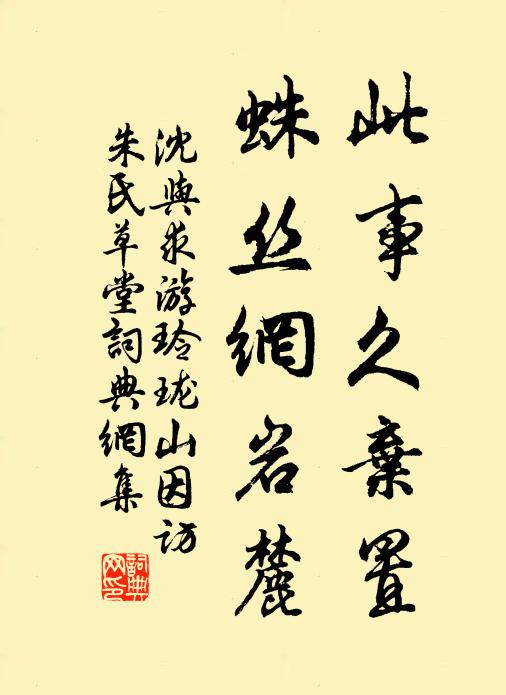 此事久棄置
蛛丝網岩麓
沈與求游玲珑山因访
朱氏草堂詞典網集
詞典
网印